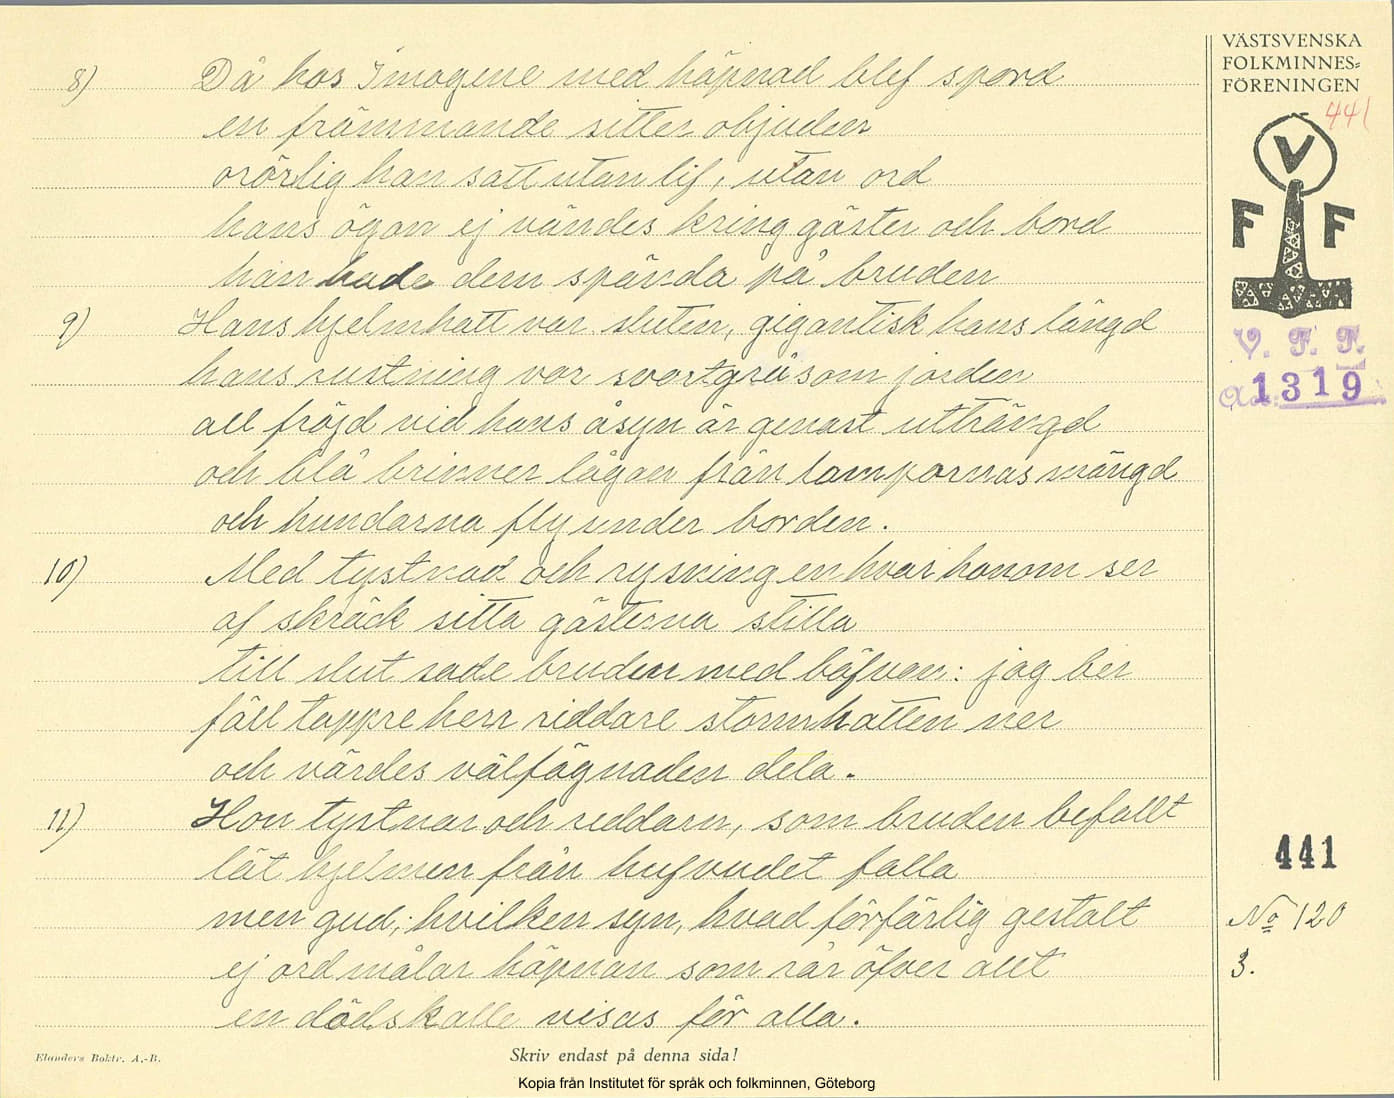 VÄSTSVENSKA
FOLKMINNES=
FÖRENINGEN
441
V
F F
V. F. F.
1319
8) Då hos Imogene med häpnad blef spord
en främmande sitter objuden
orörlig han satt utan lif, utan ord
hans ögon ej vändes kring gäster och bord
han hade dem spända på bruden
9) Hans hjelmhatt var sluten, gigantisk hans längd
hans rustning var svartgrå som jorden
all fröjd vid hans åsyn är genast utträngd
och blå brinner lågan från lampornas mängd
och hundarna fly under borden.
10) Med tystnad och rysning en hvar honom ser
af skräck sitta gästerna stilla
till slut sade bruden med bäfvan: jag ber
fäll tappre herr riddare stormhatten ner
och värdes välfägnaden dela.
11) Hon tystnar och riddarn, som bruden befallt
lät hjelmen från hufvudet falla
men gud, hvilken syn, hvad förfärlig gestalt
ej ord målar häpnan som rår öfver allt
en dödskalle visas för alla.
441
No 120
3.
Elanders Boktr. A.-B.
Skriv endast på denna sida!
Kopia från Institutet för språk och folkminnen, Göteborg